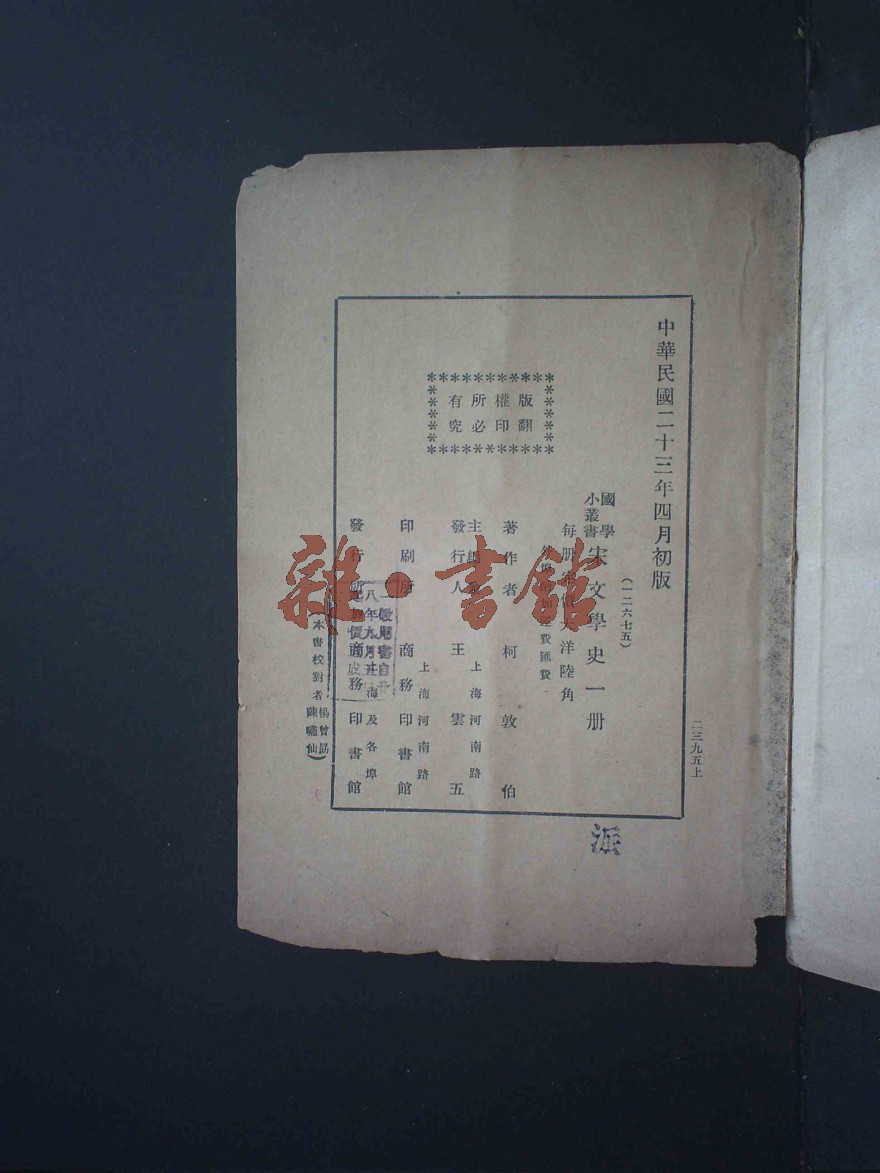 中華民國二十三年四月初版
二三九五上
(一二六七五)
國學小叢書 宋文學史一册
每册定價大洋陸角
外埠酌加運費匯費
版權所有
翻印必究
著作者 柯敦伯
主編兼發行人 王雲五
上海河南路
印刷所 商務印書館
上海河南路
發行所 商務印書館
上海及各埠
(本書校對者 楊曾勗 陳嘯仙)
派
雜·書館